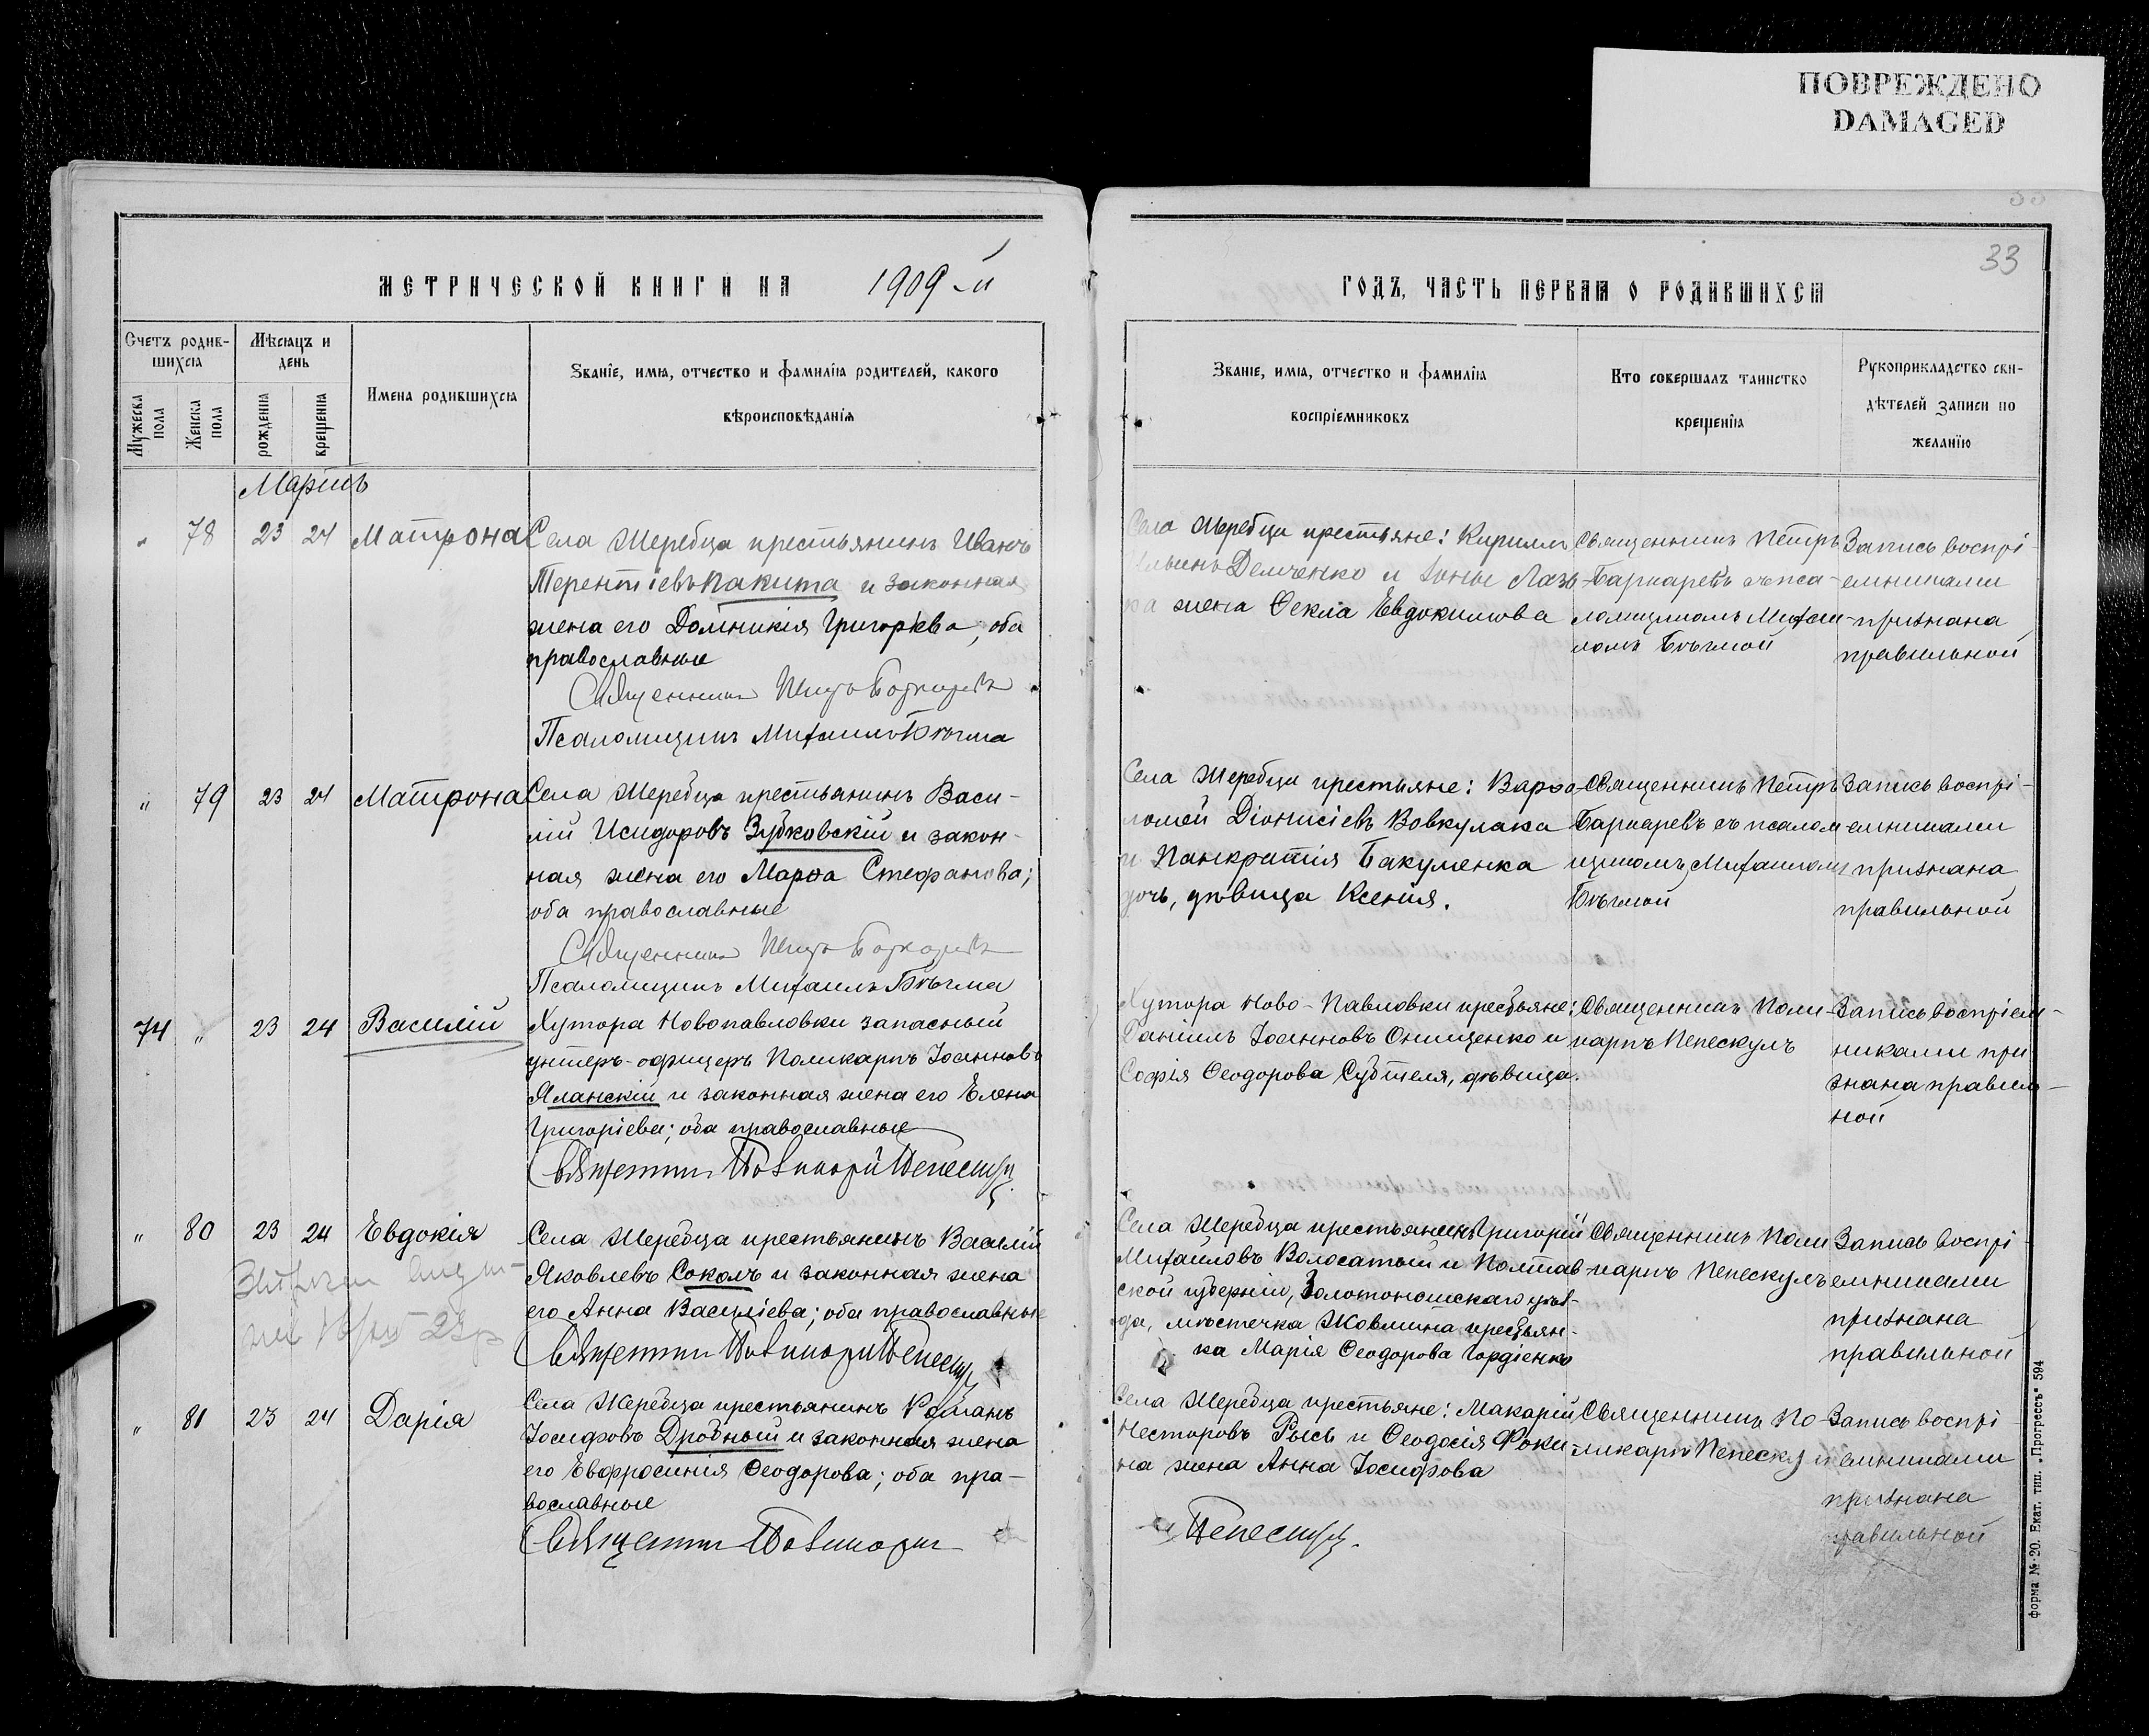 ПОВРЕЖДЕНО
DAMAGED
33
МЕТРИЧЕСКОЙ КНИГИ НА 1909-й
ГОДЪ, ЧАСТЬ ПЕРВАЯ О РОДИВШИХСЯ
Счетъ родив-
шихся
Мѣсяцъ и
день
Имена родившихся
Званіе, имя, отчество и фамилія родителей, какого
вѣроисповѣданія
Мужеска
пола
Женска
пола
рожденія
крещенія
Званіе, имя, отчество и фамилія
воспріемниковъ
Кто совершалъ таинство
крещенія
Рукоприкладство сви-
дѣтелей записи по
желанію
Мартъ
" 78 23 24 Матрона
Села Жеребца крестьянинъ Иванъ
Терентіевъ Пакита и законная
жена его Домникія Григорьева; оба
православные
Священникъ Петръ
Псаломщикъ Михаилъ Бѣгма
Села Жеребца крестьяне: Кириллъ
Демченко и
жена Ѳекла Евдокимова
Священникъ Петръ
съ пса-
ломщикомъ Михаи-
ломъ Бѣгмой
Запись воспрі-
емниками
признана
правильной
" 79 23 24 Матрона
Села Жеребца крестьянинъ Васи-
лій Исидоровъ Зубковскій и закон-
ная жена его Марѳа Стефанова;
оба православные
Священникъ Петръ
Псаломщикъ Михаилъ Бѣгма
Села Жеребца крестьяне: Варѳо-
ломей Діонисіевъ Вовкулака
и Панкратія Бакуменка
дочь, дѣвица Ксенія.
Священникъ Петръ
съ псалом
щикомъ Михаиломъ
Бѣгмой
Запись воспрі-
емниками
признана
правильной
74 " 23 24 Василій
Хутора Новопавловки запасный
унтеръ-офицеръ Поликарпъ Іоанновъ
Яланскій и законная жена его Елена
Григоріева; оба православные
Священникъ Поликарпъ Пепескулъ
Хутора Ново-Павловки крестьяне:
Даніилъ Іоанновъ Онищенко и
Софія Ѳеодорова Субтеля, дѣвица.
Священникъ Поли-
карпъ Пепескулъ
Запись воспріем-
никами при
знана правиль-
ной
" 80 23 24 Евдокія
Села Жеребца крестьянинъ Василій
Яковлевъ Соколъ и законная жена
его Анна Василіева; оба православные
Священникъ Поликарпъ Пепескулъ
Села Жеребца крестьянинъ Григорій
Михаиловъ Волосатый и Полтав-
ской губерніи, Золотоношскаго уѣз-
да, мѣстечка Жовнина крестьян-
ка Марія Ѳеодорова Гордіенко
Священникъ Поли
карпъ Пепескулъ
Запись воспрі-
емниками
признана
правильной
" 81 23 24 Дарія
Села Жеребца крестьянинъ Романъ
Іосифовъ Дробный и законная жена
его Евфросинія Ѳеодорова; оба пра-
вославные
Священникъ Поликарпъ
Пепескулъ.
Села Жеребца крестьяне: Макарій
Несторовъ Рысь и Ѳеодосія Фоки-
на жена Анна Іосифова
Священникъ По-
ликарпъ Пепескулъ
Запись воспрі-
емниками
признана
правильной
Форма № 20. Екат. тип. „Прогрессъ" 594